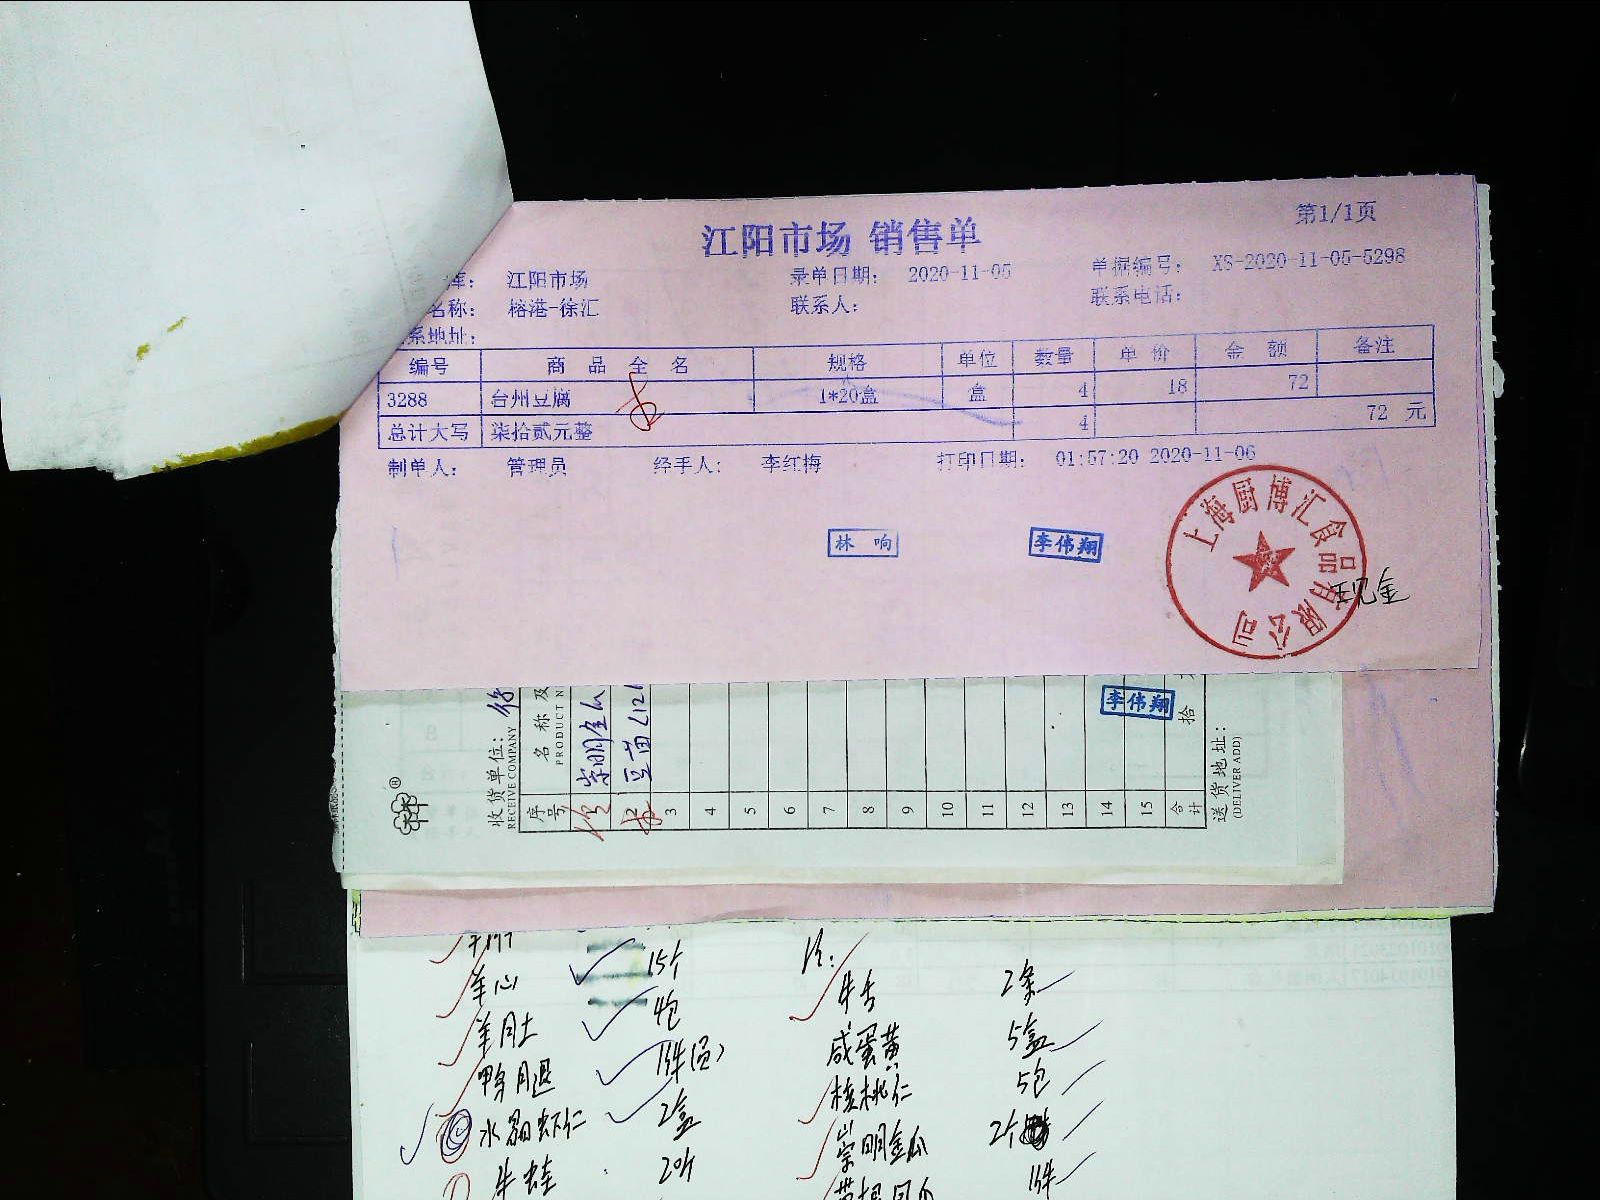 江阳市场 销售单
第1/1页
库： 江阳市场 录单日期： 2020-11-05 单据编号： XS-2020-11-05-5298
名称： 榕港-徐汇 联系人： 联系电话：
系地址：
编号 商品全名 规格 单位 数量 单价 金额 备注
3288 台州豆腐 1*20盒 盒 4 18 72
总计大写 柒拾贰元整 4 72 元
制单人： 管理员 经手人： 李红梅 打印日期： 01:57:20 2020-11-06
林响 李伟翔
上海厨博汇食品有限公司
现金
李伟翔
收货单位：
RECEIVE COMPANY
序号 名称及
PRODUCT N
崇明金瓜
豆苗
3
4
5
6
7
8
9
10
11
12
13
14
15
合计 拾
送货地址：
(DELIVER ADD)
羊心 15个
羊肚 4包
鸭腿 1件
水晶虾仁 2盒
牛蛙 20个
牛舌 2条
咸蛋黄 5盒
核桃仁 5包
崇明金瓜 2个
1件